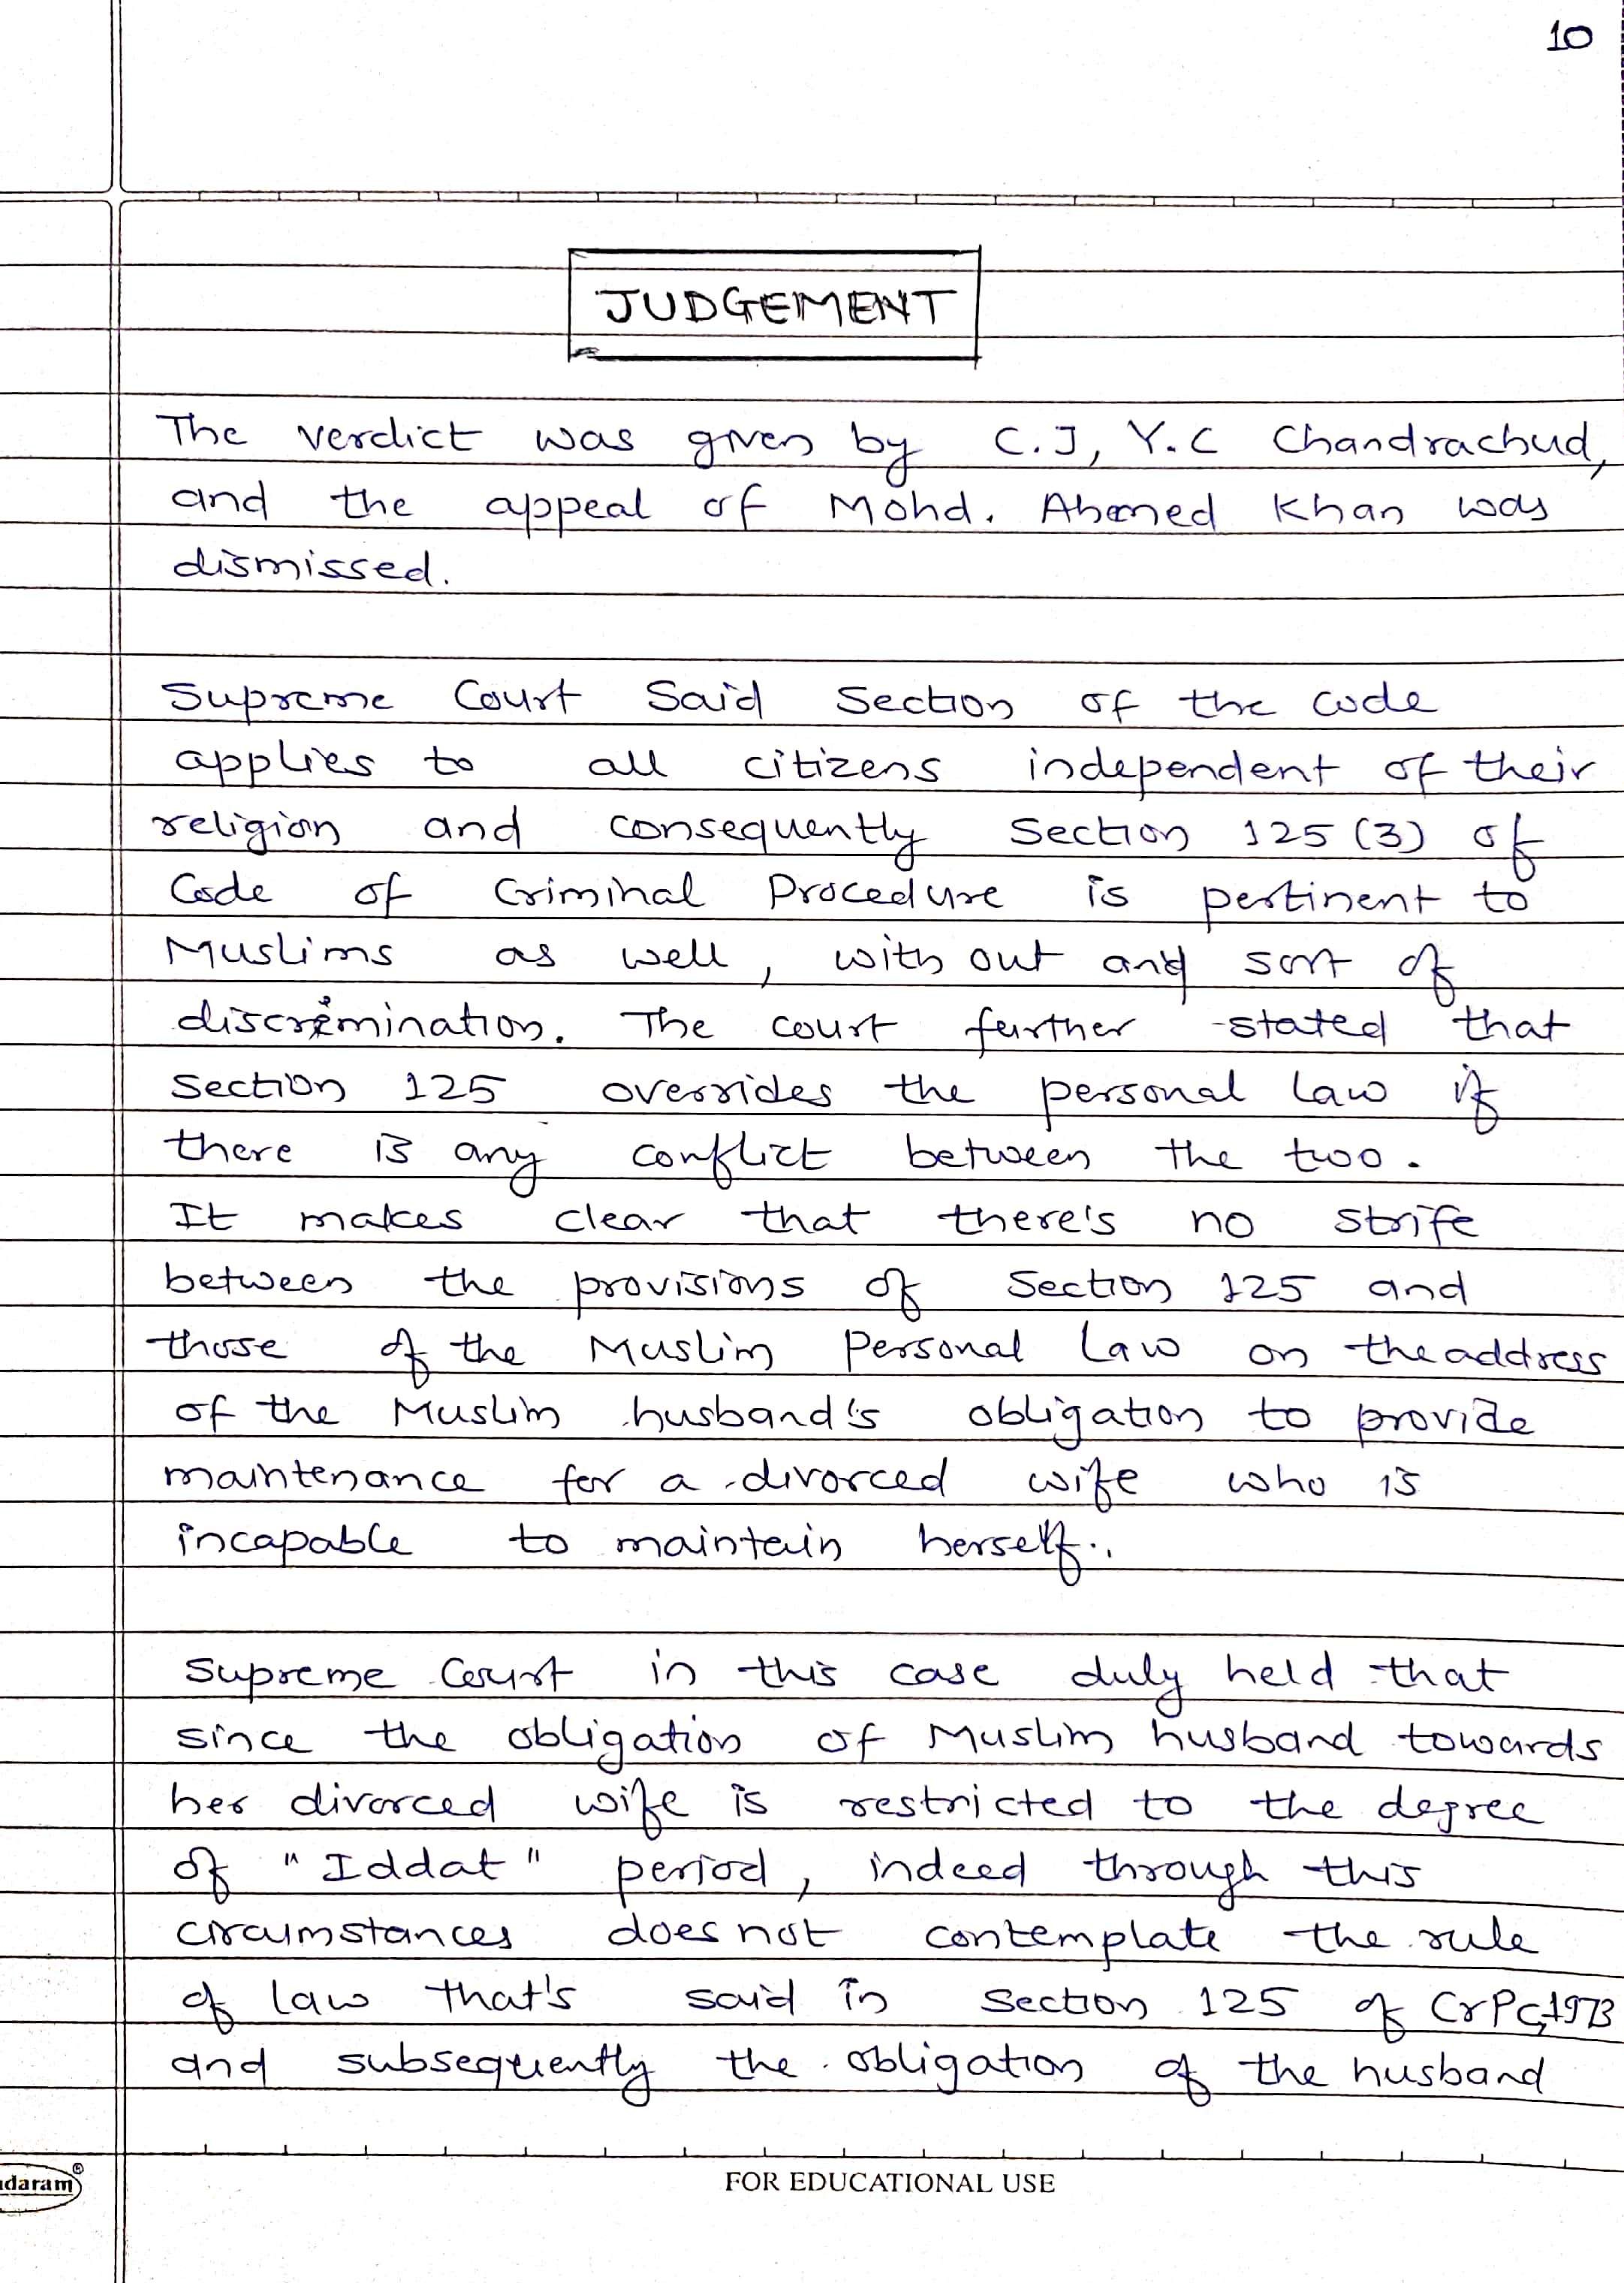 10
JUDGEMENT
The verdict was given by C.J, Y.C Chandrachud,
and the appeal of Mohd. Ahemed Khan was
dismissed.
Supreme Court Said Section of the code
applies to all citizens independent of their
religion and consequently Section 125 (3) of
Code of Criminal Procedure is pertinent to
Muslims as well, with out any sort of
discrimination. The court further stated that
Section 125 overrides the personal law if
there is any conflict between the two.
It makes clear that there's no strife
between the provisions of Section 125 and
those of the Muslim Personal Law on the address
of the Muslim husband's obligation to provide
maintenance for a divorced wife who is
incapable to maintain herself..
Supreme Court in this case duly held that
since the obligation of Muslim husband towards
her divorced wife is restricted to the degree
of "Iddat" period, indeed through this
circumstances does not contemplate the rule
of law that's said in Section 125 of CrPC,1973
and subsequently the obligation of the husband
daram®
FOR EDUCATIONAL USE